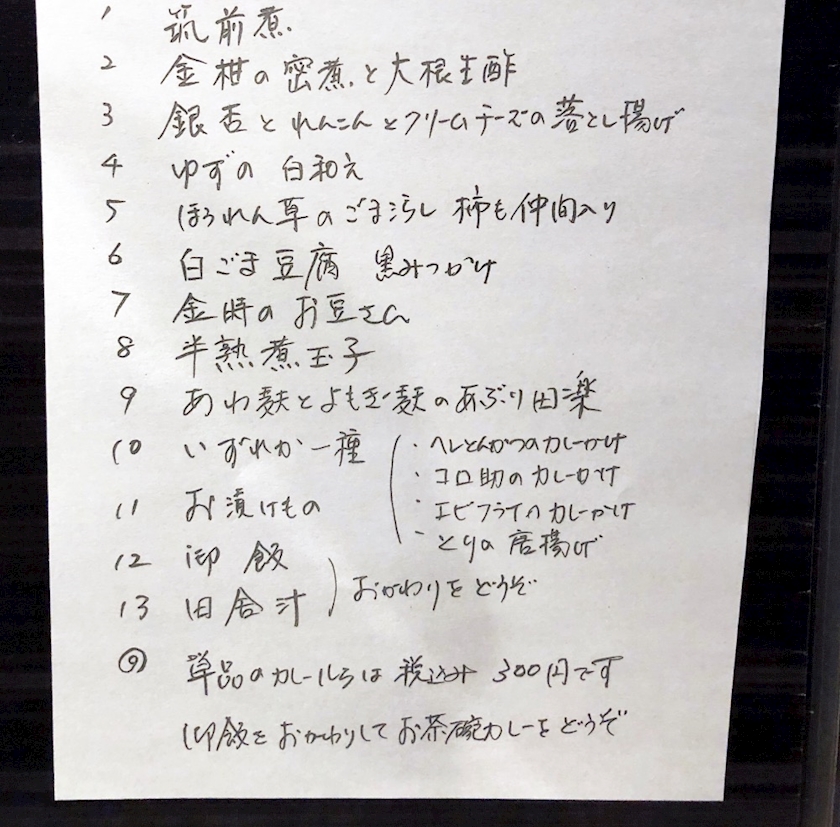 1 筑前煮
2 金柑の密煮と大根生酢
3 銀杏とれんこんとクリームチーズの落とし揚げ
4 ゆずの 白和え
5 ほうれん草のごま汚し 柿も仲間入り
6 白ごま豆腐 黒みつがけ
7 金時のお豆さん
8 半熟煮玉子
9 あわ麩とよもぎ麩のあぶり田楽
10 いずれか一種
・ヘレとんかつのカレーがけ
・コロ助のカレーがけ
・エビフライのカレーがけ
・とりの唐揚げ
11 お漬けもの
12 御飯
13 田舎汁
おかわりをどうぞ
単品のカレールウは 税込み 300円です
御飯をおかわりしてお茶碗カレーをどうぞ